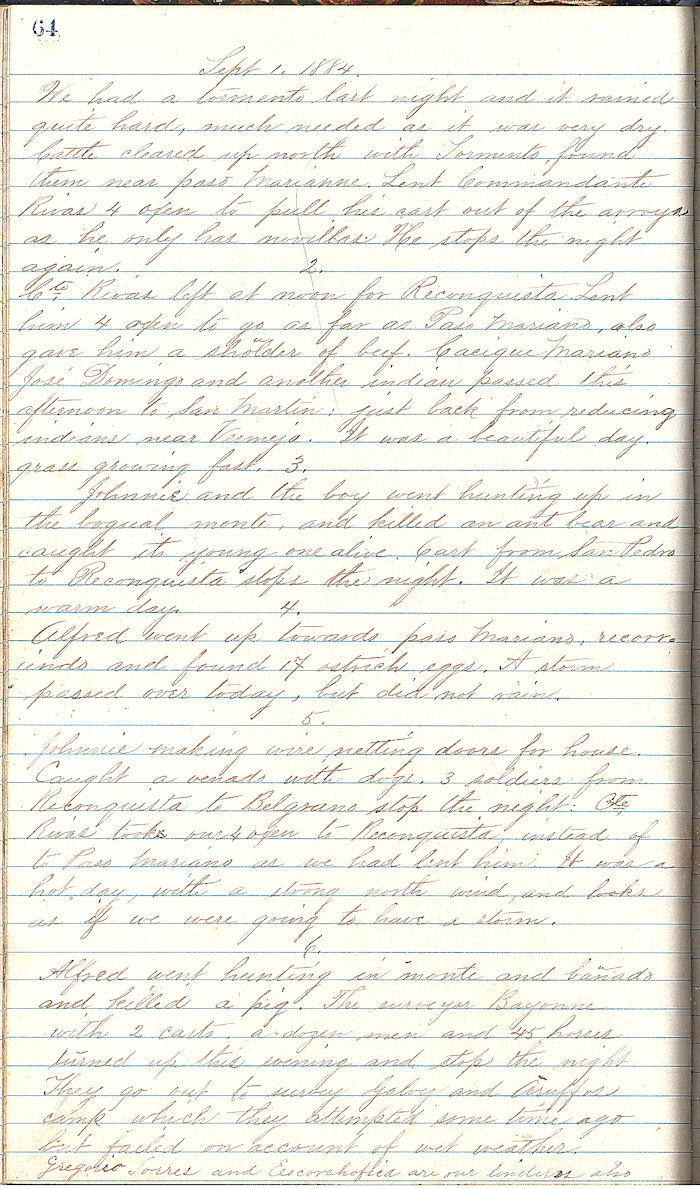 64
Sept 1. 1884.
We had a tormento last night and it rained
quite hard, much needed as it was very dry.
Cattle cleared up north with Tormento, found
them near paso Marianne. Lent Commandante
Rivas 4 oxen to pull his cart out of the arroyo
as he only has novillos. He stops the night
again. 2.
Cte Rivas left at noon for Reconquista Lent
him 4 oxen to go as far as Paso Mariano, also
gave him a sholder of beef. Cacique Mariano
José Domingo and another indian passed this
afternoon to San Martin: just back from reducing
indians near Vermejo. It was a beautiful day.
grass growing fast. 3.
Johnnie and the boy went hunting up in
the boqual monte, and killed an ant bear and
caught its young one alive. Cart from San Pedro
to Reconquista stops the night. It was a
warm day. 4.
Alfred went up towards paso Mariano, recorr-
iendo and found 17 ostrich eggs. A storm
passed over today, but did not rain.
5.
Johnnie making wire netting doors for house.
Caught a venado with dogs. 3 soldiers from
Reconquista to Belgrano stop the night: Cte
Rivas took our 4 oxen to Reconquista, instead of
to Paso Mariano as we had lent him. It was a
hot day, with a strong north wind, and looks
as if we were going to have a storm.
6.
Alfred went hunting in monte and bañado
and killed a pig. The surveyor Bayonne
with 2 carts, a dozen men and 45 horses
turned up this evening and stop the night.
They go out to survey and
camp which they attempted some time ago
but failed on account of wet weather.
Gregorio Torres and are our also